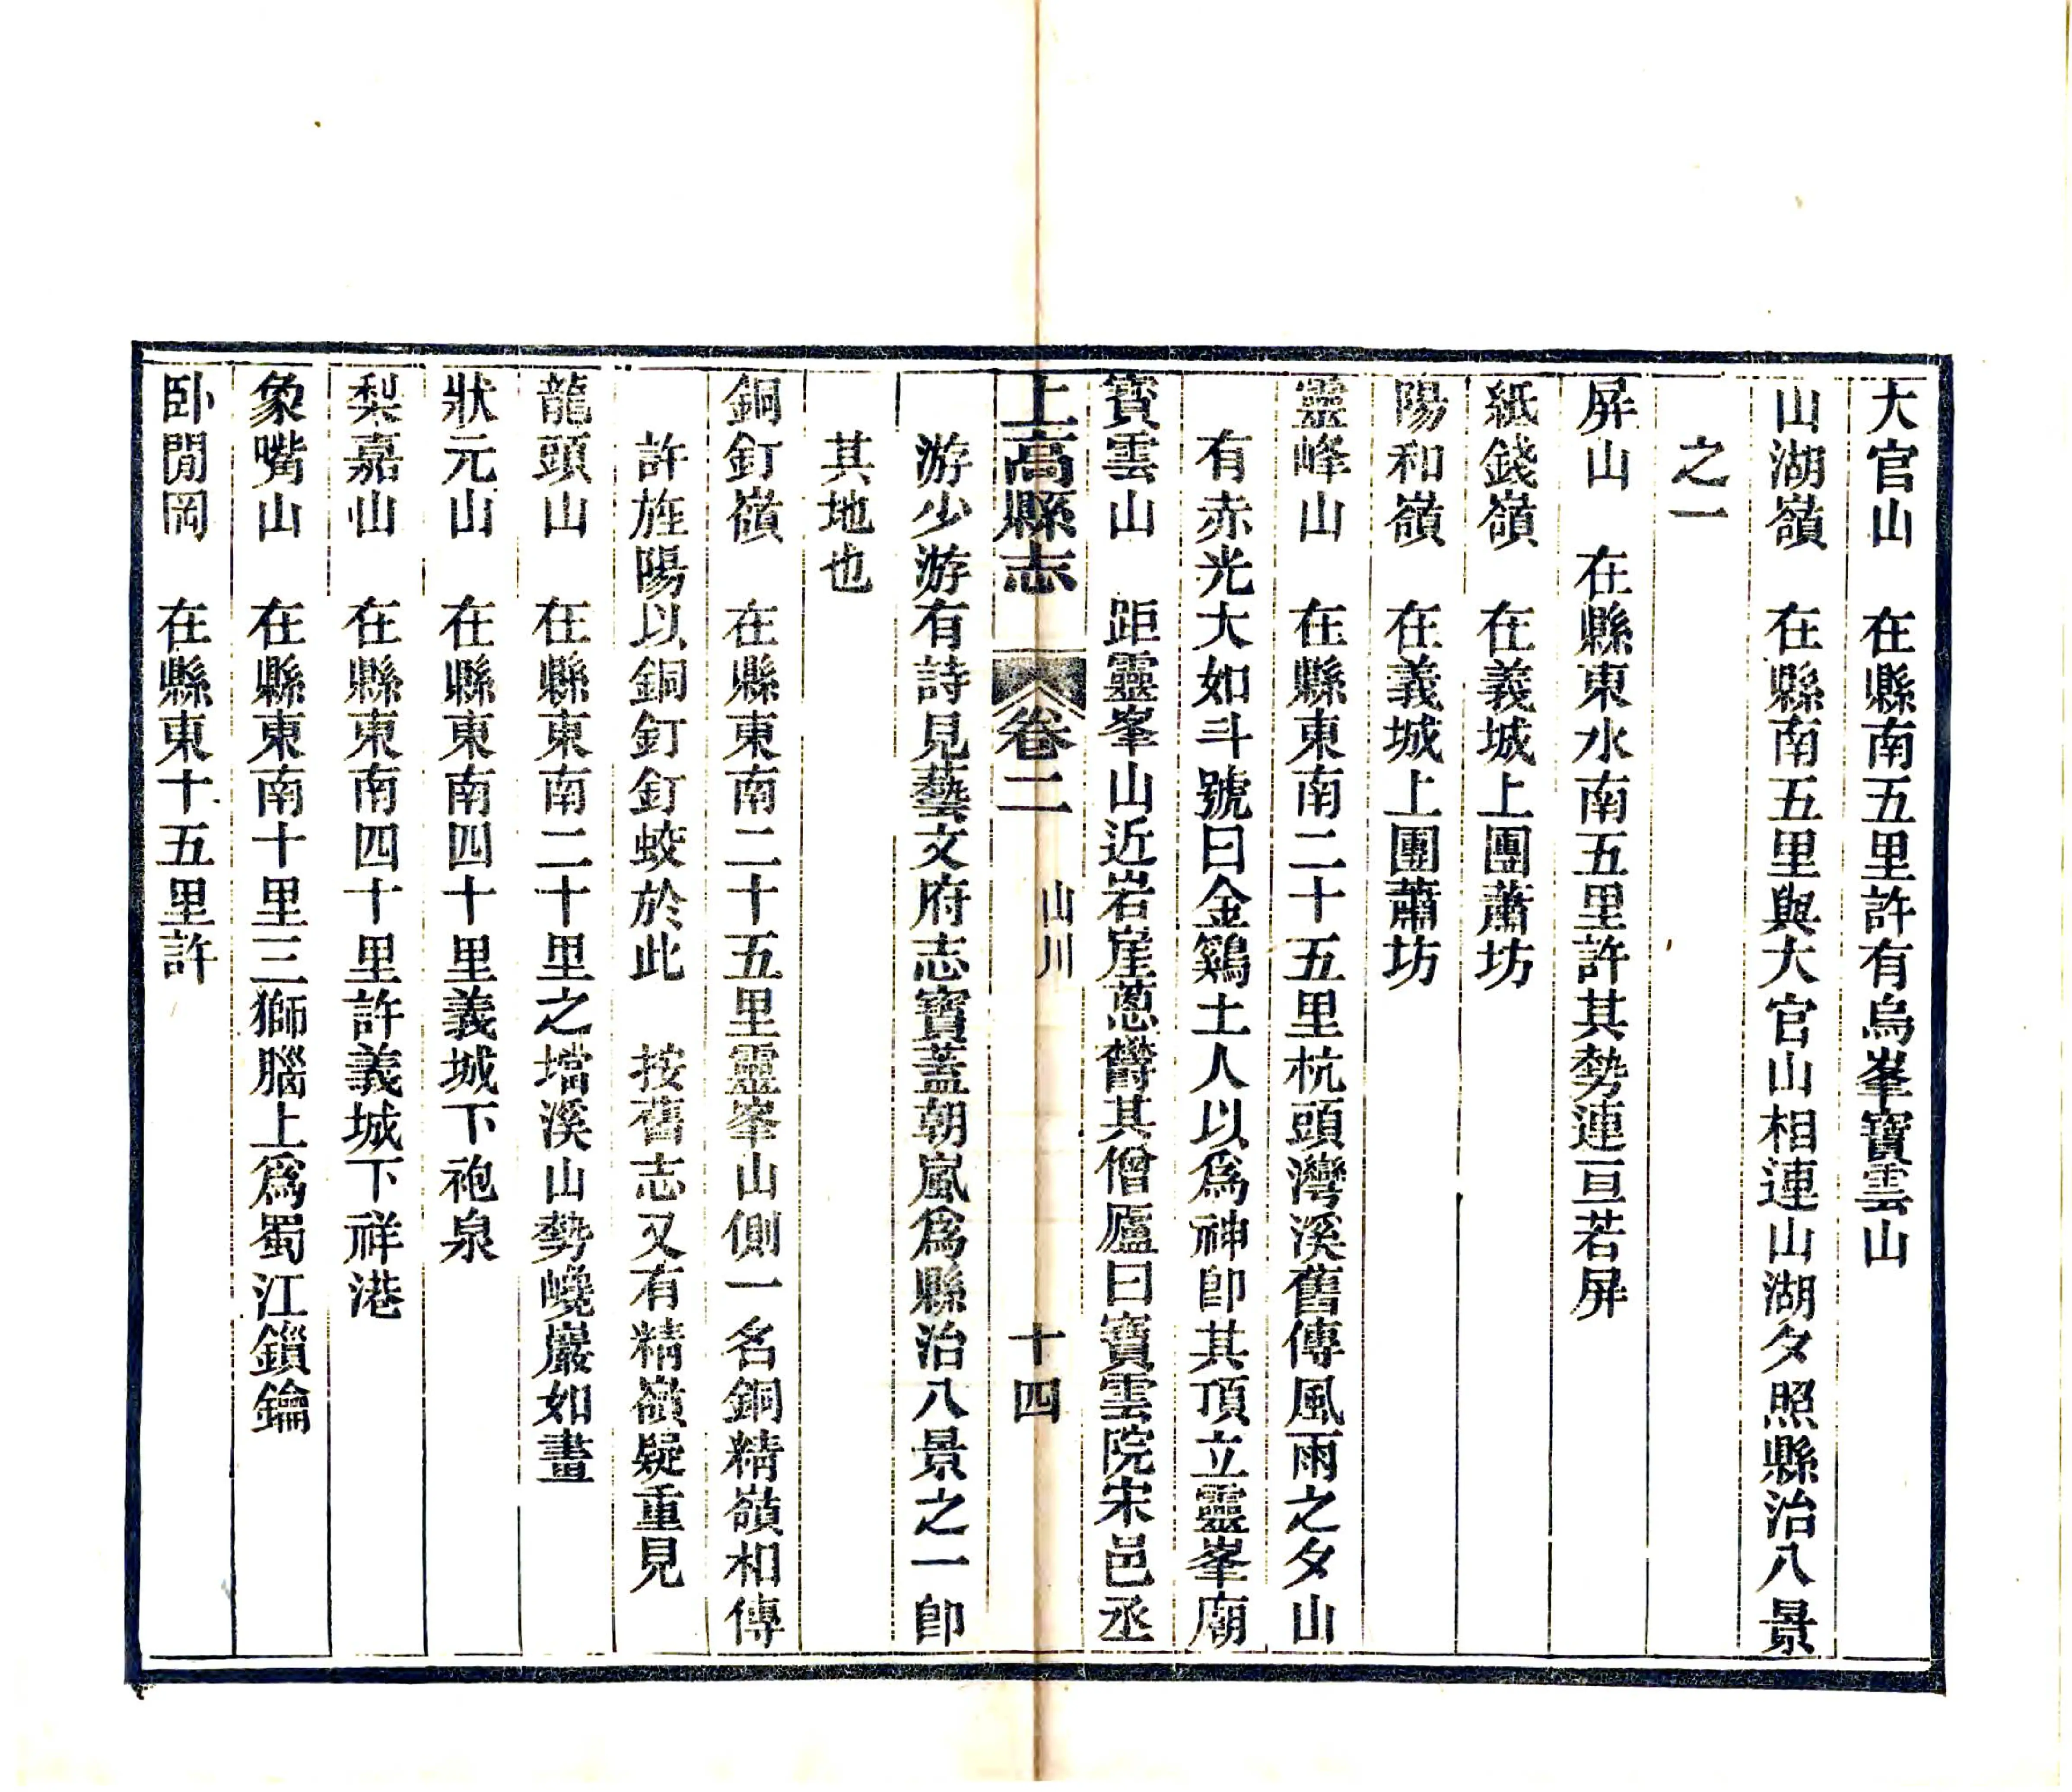 大官山　在縣南五里許有烏峯寶雲山
山湖嶺　在縣南五里與大官山相連山湖夕照縣治八景
之一
屏山　在縣東水南五里許其勢連亘若屏
紙錢嶺　在義城上團蕭坊
陽和嶺　在義城上團蕭坊
靈峰山　在縣東南二十五里杭頭灣溪舊傳風雨之夕山
有赤光大如斗號曰金鷄土人以爲神卽其頂立靈峯廟
寶雲山　距靈峯山近岩崖蔥欝其僧廬曰寶雲院宋邑丞
上高縣志　卷二　山川　十四
游少游有詩見藝文府志寶蓋朝嵐爲縣治八景之一卽
其地也
銅釘嶺　在縣東南二十五里靈峯山側一名銅精嶺相傳
許旌陽以銅釘釘蛟於此　按舊志又有精嶺疑重見
龍頭山　在縣東南二十里之壋溪山勢巉巖如畫
狀元山　在縣東南四十里義城下袍泉
梨嘉山　在縣東南四十里許義城下祥港
象嘴山　在縣東南十里三獅腦上爲蜀江鎖鑰
卧閒岡　在縣東十五里許